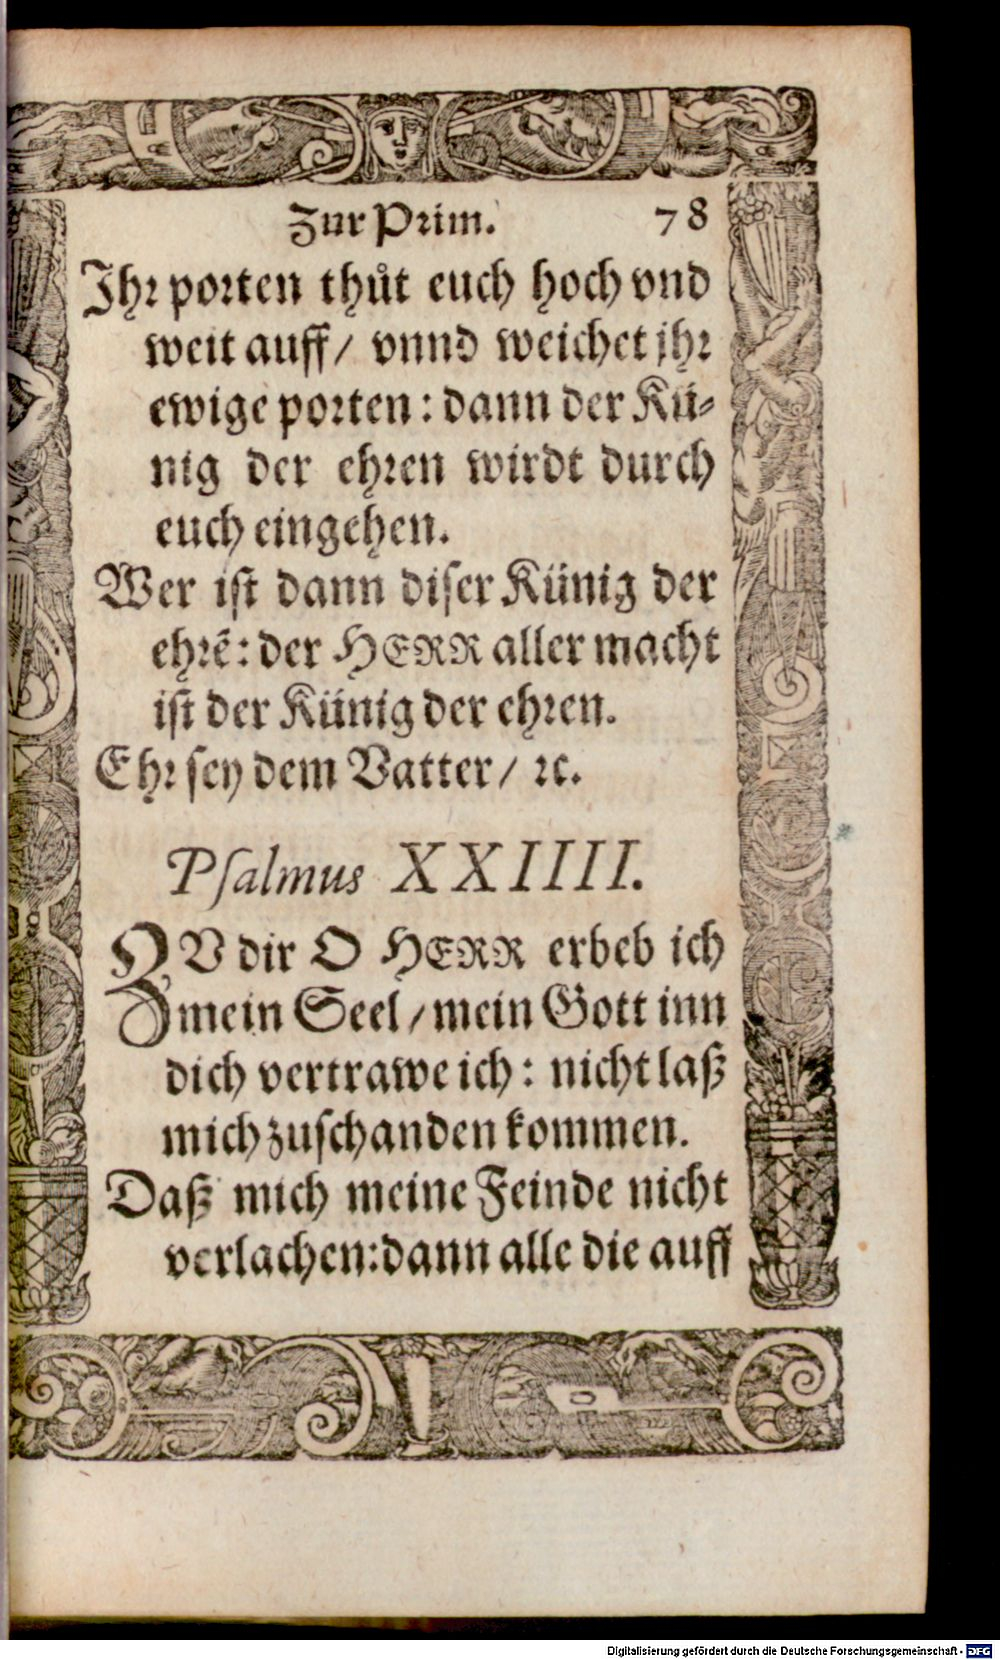 Zur Prim. 78
Ihr porten thůt euch hoch vnd
weit auff/ vnnd weichet jhr
ewige porten: dann der Kü⸗
nig der ehren wirdt durch
euch eingehen.
Wer ist dann diser Künig der
ehrẽ: der HERR aller macht
ist der Künig der ehren.
Ehr sey dem Vatter/ ꝛc.
Psalmus XXIIII.
ZV dir O HERR erheb ich
mein Seel/ mein Gott inn
dich vertrawe ich: nicht laß
mich zuschanden kommen.
Daß mich meine Feinde nicht
verlachen: dann alle die auff
Digitalisierung gefördert durch die Deutsche Forschungsgemeinschaft - DFG